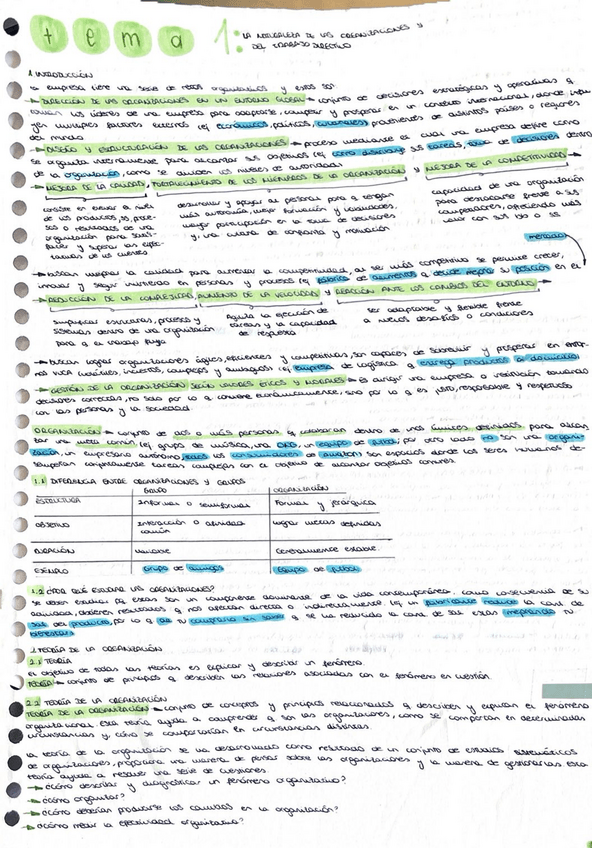 tema 1: LA NATURALEZA DE LAS ORGANIZACIONES Y
DEL TRABAJO DIRECTIVO
1. INTRODUCCIÓN
La empresa tiene una serie de retos organizativos y estos son:
→ DIRECCIÓN DE LAS ORGANIZACIONES EN UN ENTORNO GLOBAL → conjunto de decisiones estratégicas y operativas q
toman los líderes de una empresa para adaptarse, competir y prosperar en un contexto internacional, donde influ
yen múltiples factores externos (ej económicos, políticos, culturales) provenientes de distintos países o regiones
del mundo
→ DISEÑO Y ESTRUCTURACIÓN DE LAS ORGANIZACIONES → proceso mediante el cual una empresa define como
se organiza internamente para alcanzar sus objetivos (ej como distribuye sus tareas, toma de decisiones dentro
de la organización, como se dividen los niveles de autoridad)
→ MEJORA DE LA CALIDAD, FORTALECIMIENTO DE LOS MIEMBROS DE LA ORGANIZACIÓN Y MEJORA DE LA COMPETITIVIDAD →
consiste en elevar el nivel
de los productos, ss, proce-
sos o resultados de una
organización para satis-
facer y superar las expec-
tativas de los clientes
desarrollar y apoyar al personal para q tengan
más autonomía, mejor formación y habilidades,
mayor participación en la toma de decisiones
y, una cultura de confianza y motivación
capacidad de una organización
para destacarse frente a sus
competidores, ofreciendo más
valor con sus bb o ss
mercado
→ buscan mejorar la calidad para aumentar la competitividad, al ser más competitivo se permite crecer,
innovar y seguir invirtiendo en personas y procesos (ej fábrica de alimentos q decide mejorar su posición en el
→ REDUCCIÓN DE LA COMPLEJIDAD, AUMENTO DE LA VELOCIDAD Y REACCIÓN ANTE LOS CAMBIOS DEL ENTORNO
simplificar estructuras, procesos y
sistemas dentro de una organización
para q el trabajo fluya
agiliza la ejecución de
tareas y la capacidad
de respuesta
ser adaptable y flexible frente
a nuevos desafíos o condiciones
→ buscan lograr organizaciones ágiles, eficientes y competitivas, son capaces de sobrevivir y prosperar en entor-
nos VUCA (volátiles, inciertos, complejos y ambiguos) (ej empresa de logística q entrega productos a domicilio)
→ GESTIÓN DE LA ORGANIZACIÓN SEGÚN VALORES ÉTICOS Y MORALES → es dirigir una empresa o institución tomando
decisiones correctas, no solo por lo q conviene económicamente, sino por lo q es justo, responsable y respetuoso
con las personas y la sociedad.
ORGANIZACIÓN → conjunto de dos o más personas q colaboran dentro de unos límites definidos para alcan-
zar una meta común. (ej grupo de música, una ONG, un equipo de fútbol; por otro lado no son una organi-
zación, un empresario autónomo, los consumidores de ) son espacios donde los seres humanos de-
sempeñan conjuntamente tareas complejas con el objetivo de alcanzar objetivos comunes.
1.1 DIFERENCIA ENTRE ORGANIZACIONES Y GRUPOS
GRUPO ORGANIZACIÓN
ESTRUCTURA Informal o semiformal Formal y jerárquica
OBJETIVO Interacción o afinidad común lograr metas definidas
DURACIÓN variable Generalmente estable.
EJEMPLO Grupo de amigos Equipo de fútbol
1.2 ¿POR QUÉ ESTUDIAR LAS ORGANIZACIONES?
Se deben estudiar pq estas son un componente dominante de la vida contemporánea. como consecuencia de su
actividad, obtienen resultados q nos afectan directa o indirectamente. (ej un fabricante reduce la cant de
sal del producto, por lo q al tu comprarlo sin saber q se ha reducido la cant de sal estas mejorando tu
bienestar)
2. TEORÍA DE LA ORGANIZACIÓN
2.1 TEORÍA
El objetivo de todas las teorías es explicar y describir un fenómeno.
TEORÍA → conjunto de principios q describen las relaciones asociadas con el fenómeno en cuestión.
2.2 TEORÍA DE LA ORGANIZACIÓN
TEORÍA DE LA ORGANIZACIÓN → conjunto de conceptos y principios relacionados q describen y explican el fenómeno
organizacional. Esta teoría ayuda a comprender q son las organizaciones, como se comportan en determinadas
circunstancias y, cómo se comportarían en circunstancias distintas.
La teoría de la organización se ha desarrollado como resultado de un conjunto de estudios sistemáticos
de organizaciones, proporciona una manera de pensar sobre las organizaciones y la manera de gestionarlas esta
teoría ayuda a resolver una serie de cuestiones.
→ ¿cómo describir y diagnosticar un fenómeno organizativo?
→ ¿cómo organizar?
→ ¿cómo deberían producirse los cambios en la organización?
→ ¿cómo medir la efectividad organizativa?